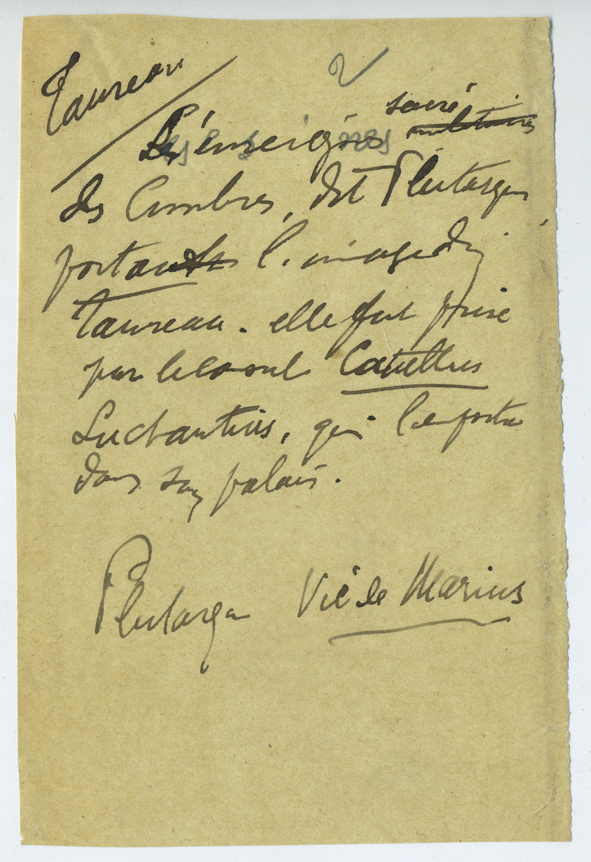 Taureau
2
sacré
L'enseigne militaires
des Cimbres, dit Plutarque
portant l'image du
Taureau. elle fut prise
par le consul Catullus
Luctantius, qui l'emporta
dans son palais.
Plutarque Vie de Marius